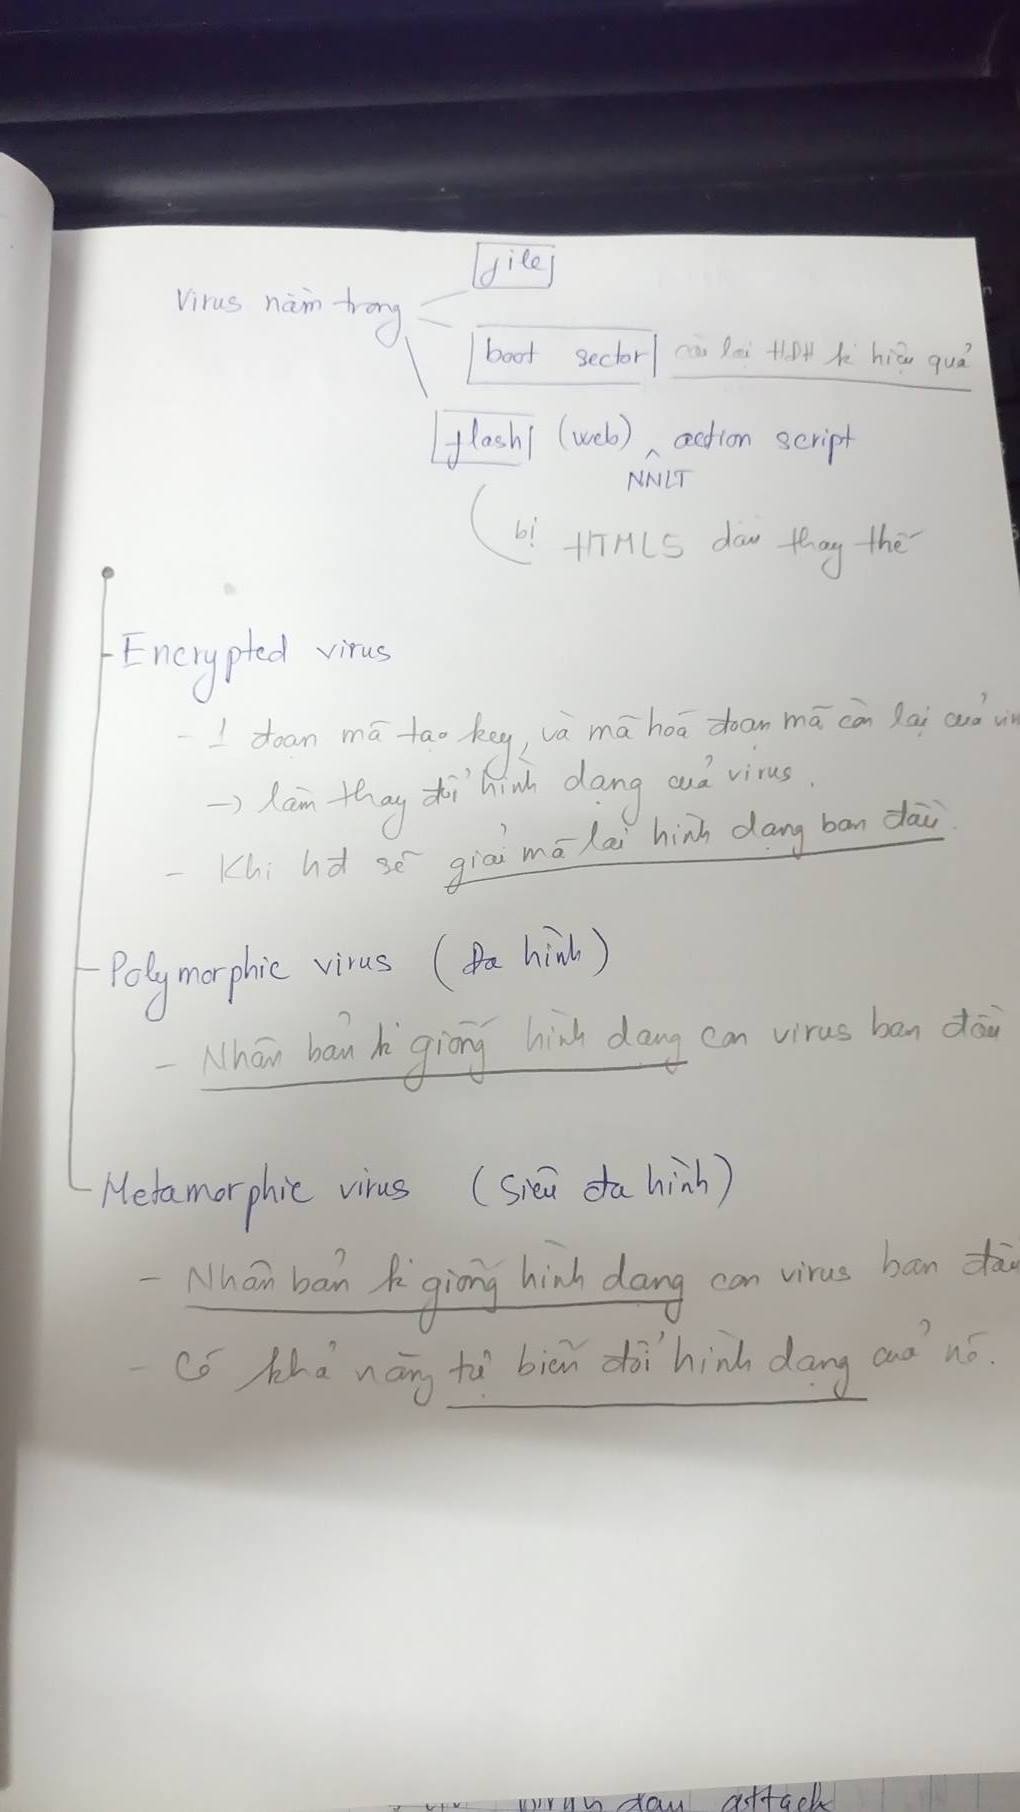 file
Virus nằm trong
boot sector cài lại HĐH k hiệu quả
flash (web) ^ action script
NNLT
bị HTML5 dần thay thế
Encrypted virus
- 1 đoạn mã tạo key, và mã hoá đoạn mã còn lại của
-> làm thay đổi hình dạng của virus.
- Khi hđ sẽ giải mã lại hình dạng ban đầu.
Polymorphic virus (Đa hình)
- Nhân bản k giống hình dạng con virus ban đầu
Metamorphic virus (Siêu đa hình)
- Nhân bản k giống hình dạng con virus ban đầu
- Có khả năng tự biến đổi hình dạng của nó.
attack